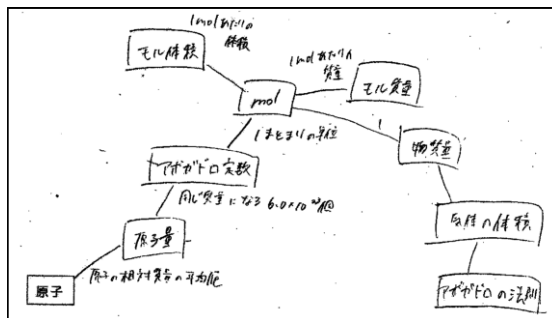 1molあたりの
体積
モル体積
1molあたりの
質量
モル質量
mol
1まとまりの単位
物質量
アボガドロ定数
同じ質量になる 6.0×10 個
原子量
の体積
原子の相対質量の平均値
原子
アボガドロの法則